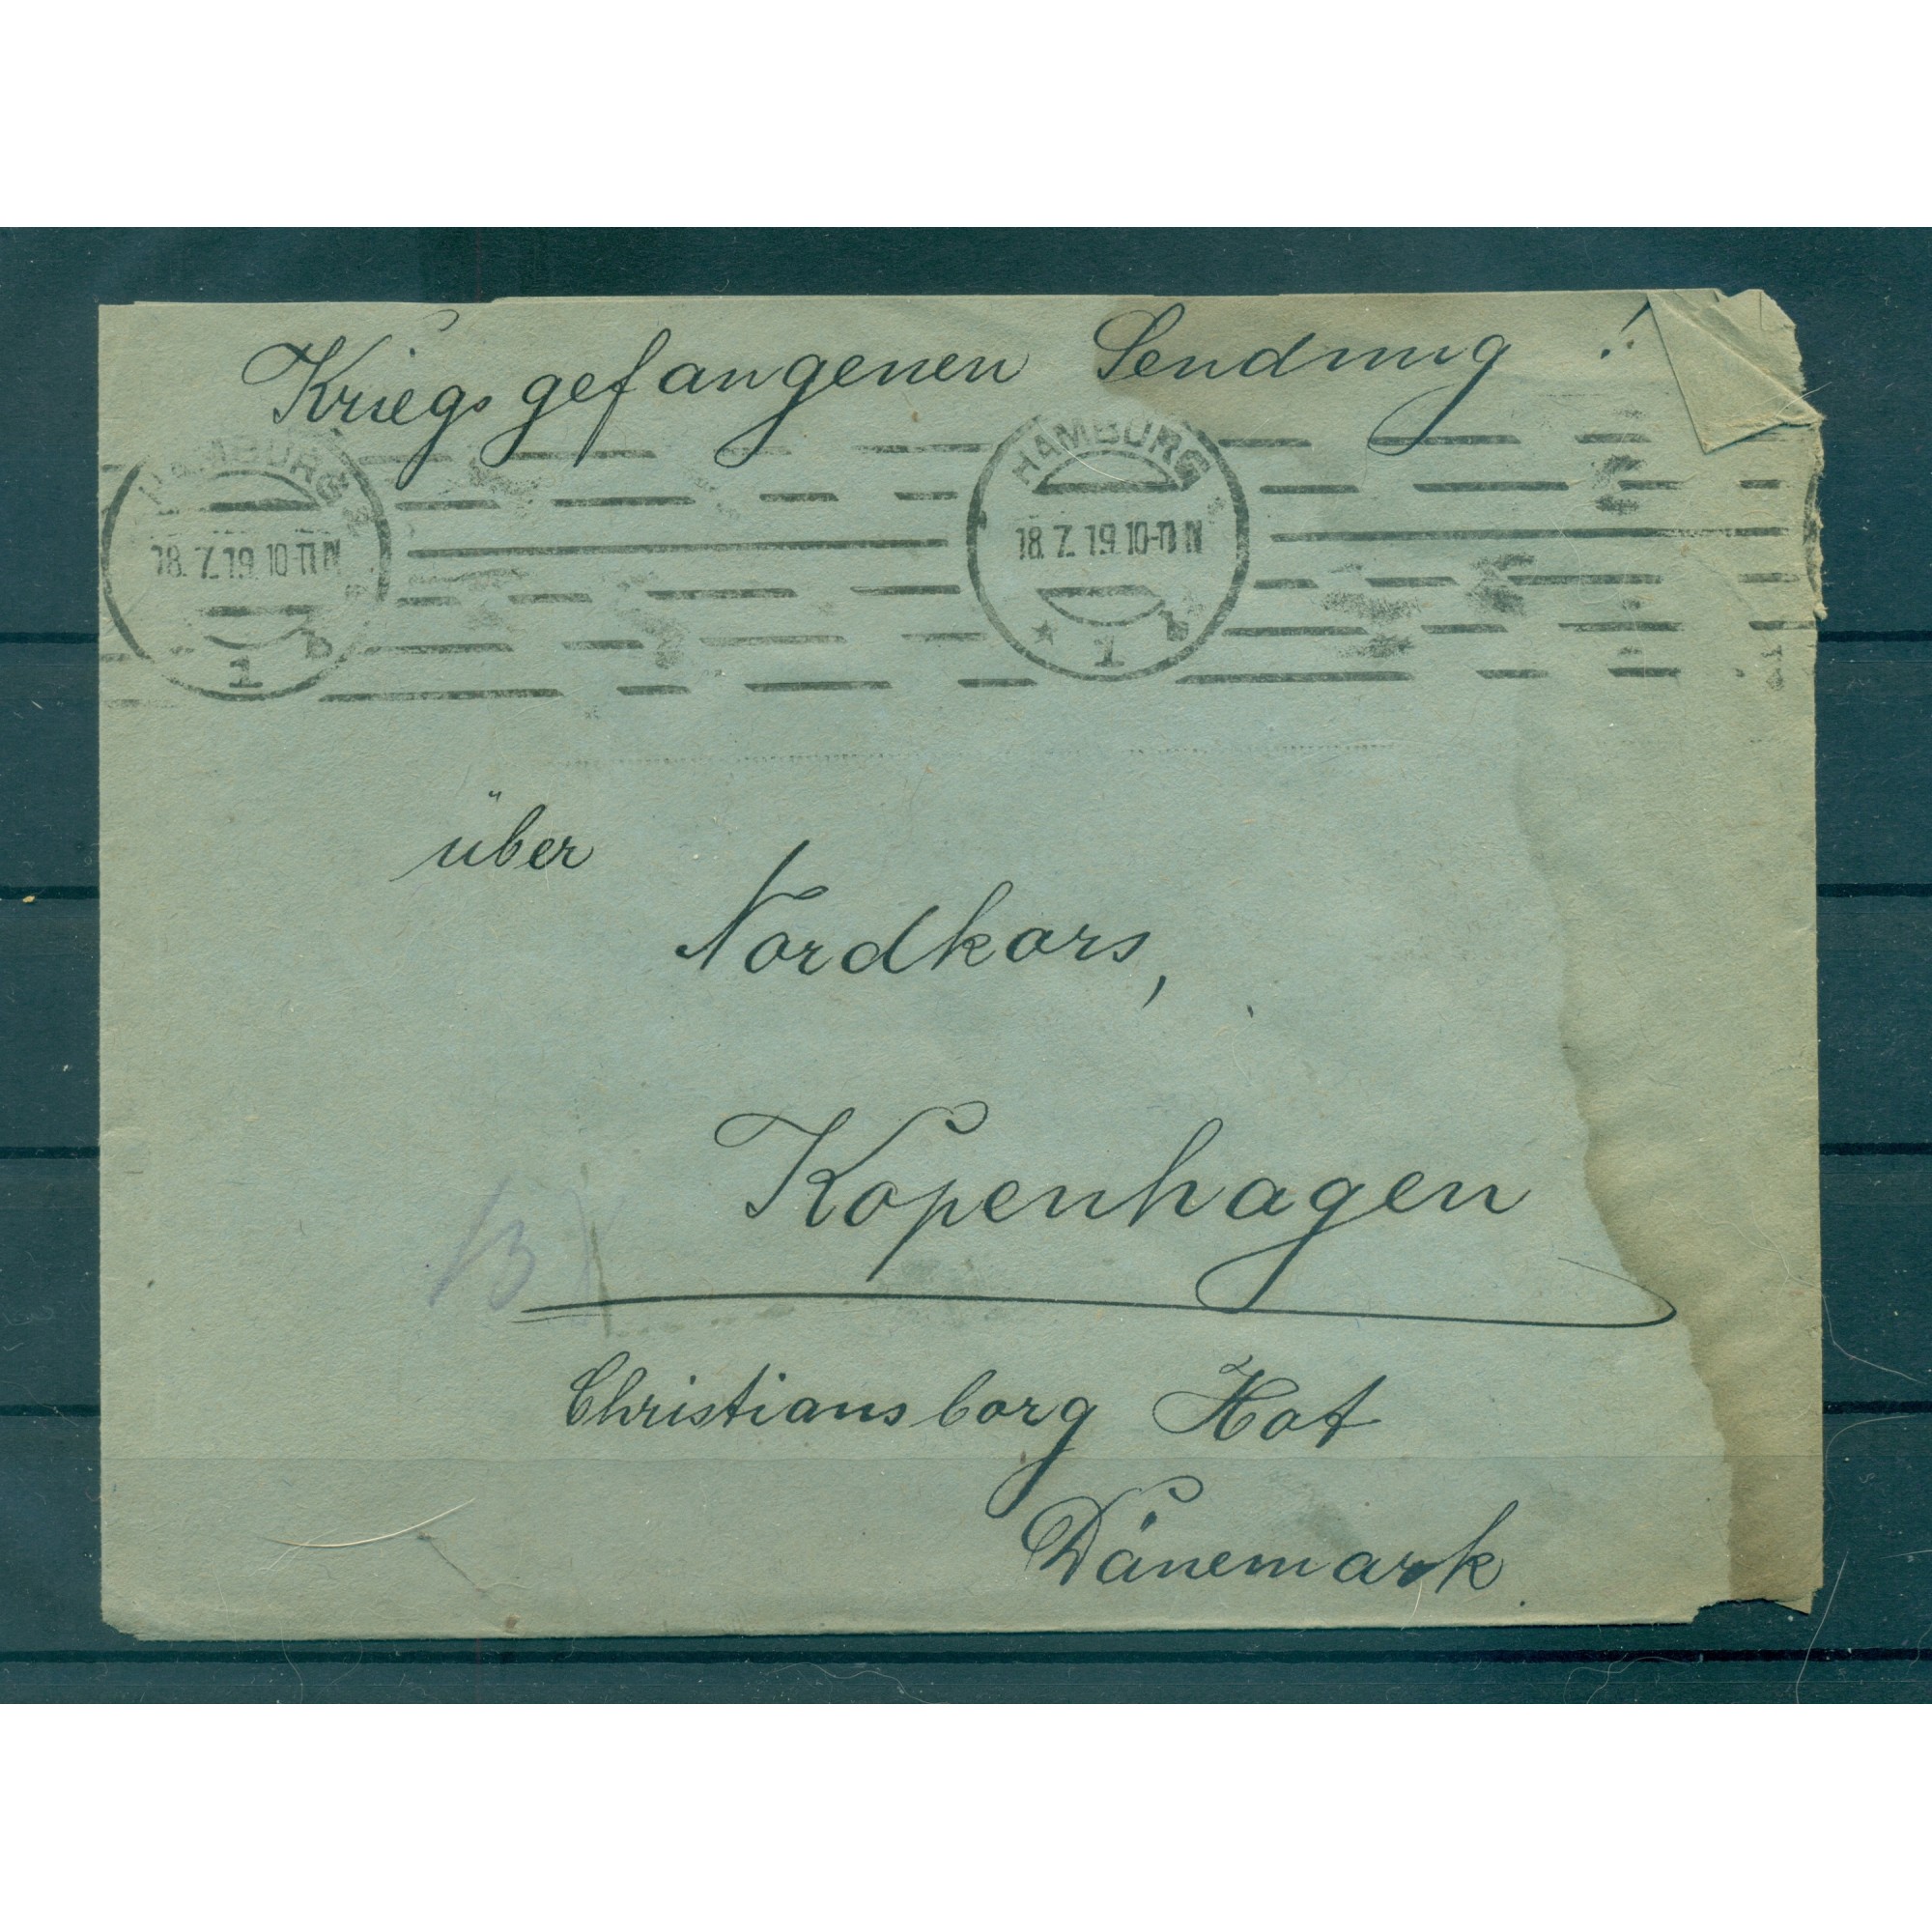 Kriegsgefangenen Sendung!
HAMBURG
18.7.19.10-11 N
1 b
HAMBURG
18.7.19.10-11 N
* 1 b
über
Nordkors,
Kopenhagen
13
Christiansborg Hof
Dänemark.